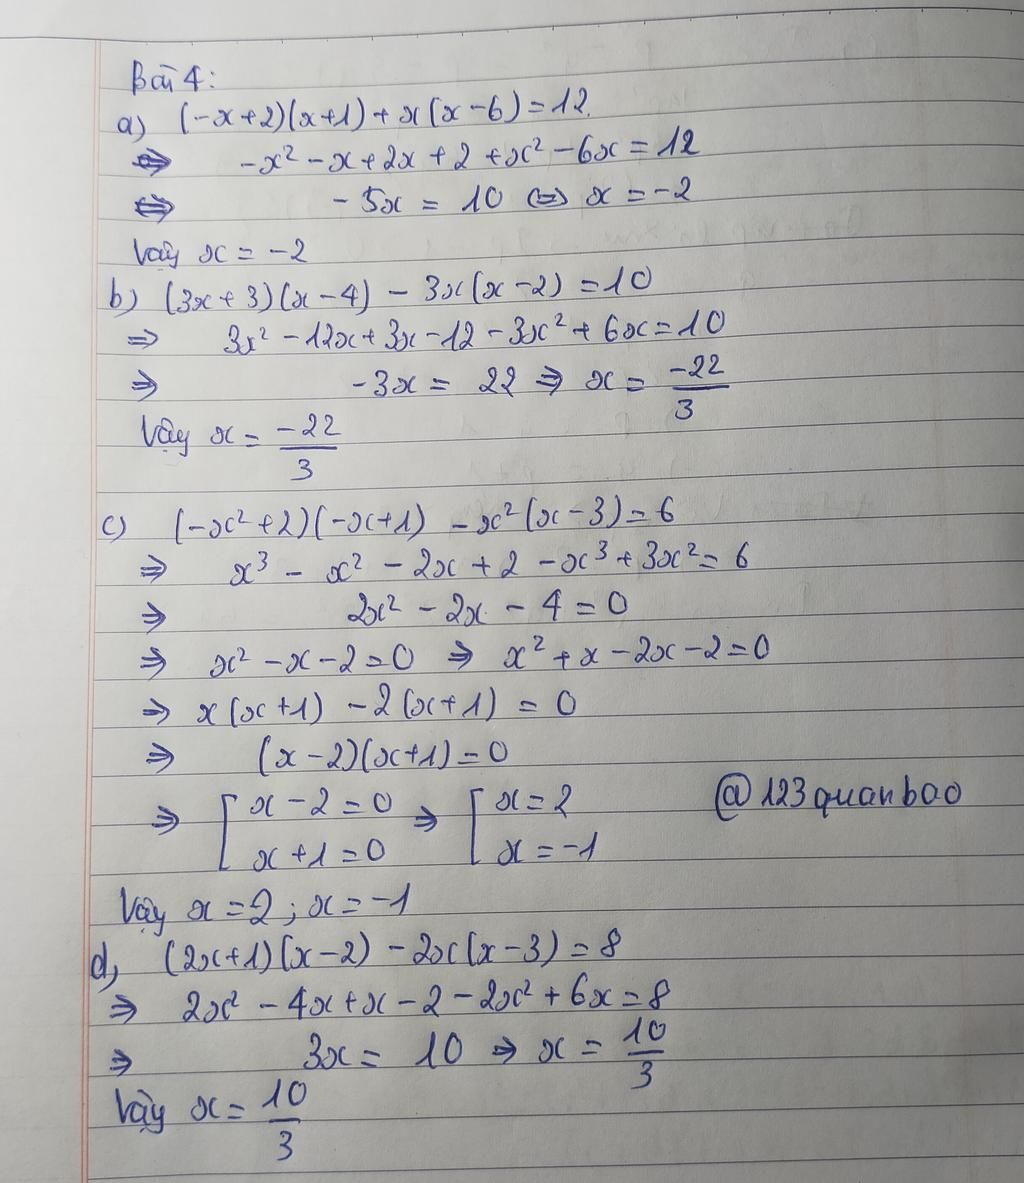 Bài 4:
a) (-x+2)(x+1)+x(x-6)=12.
⇔ -x² - x + 2x + 2 + x² - 6x = 12
⇔ - 5x = 10 ⇔ x = -2
Vậy x = -2
b) (3x+3)(x-4) - 3x(x-2) = 10
⇒ 3x² - 12x + 3x - 12 - 3x² + 6x = 10
⇒ -3x = 22 ⇒ x = -22/3
Vậy x = -22/3
c) (-x²+2)(-x+1) - x²(x-3) = 6
⇒ x³ - x² - 2x + 2 - x³ + 3x² = 6
⇒ 2x² - 2x - 4 = 0
⇒ x² - x - 2 = 0 ⇒ x² + x - 2x - 2 = 0
⇒ x(x+1) - 2(x+1) = 0
⇒ (x-2)(x+1) = 0
⇒ [ x - 2 = 0 ⇒ [ x = 2 @123quanbao
x + 1 = 0 x = -1
Vậy x = 2 ; x = -1
d, (2x+1)(x-2) - 2x(x-3) = 8
⇒ 2x² - 4x + x - 2 - 2x² + 6x = 8
⇒ 3x = 10 ⇒ x = 10/3
Vậy x = 10/3